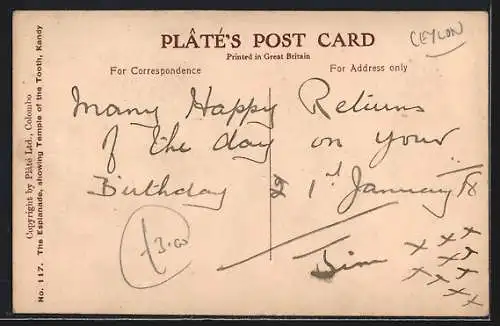 PLÂTÉ'S POST CARD
Printed in Great Britain
CEYLON
For Correspondence
For Address only
Many Happy Returns
of the day on your
Birthday 1st January
Jim x x x
x x x
x x x x
3.00
Copyright by Plâté Ltd., Colombo
No. 117. The Esplanade, showing Temple of the Tooth, Kandy